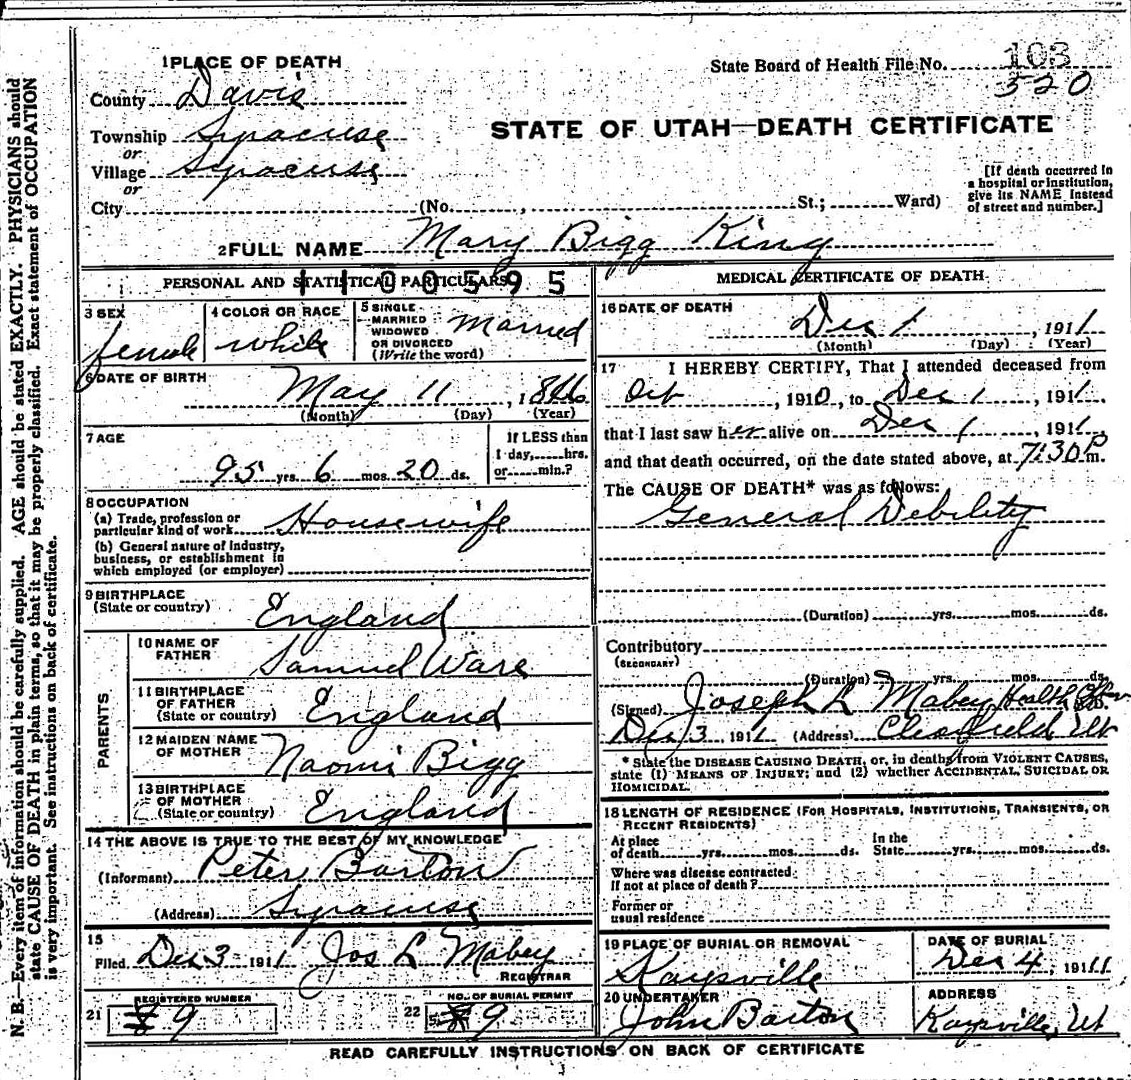 1 PLACE OF DEATH
State Board of Health File No. 103
520
County Davis
STATE OF UTAH—DEATH CERTIFICATE
Township Syracuse
or
Village Syracuse
or
City (No. , St.; Ward)
[If death occurred in
a hospital or institution,
give its NAME instead
of street and number.]
2 FULL NAME Mary Bigg King
1100595
PERSONAL AND STATISTICAL PARTICULARS
3 SEX
female
4 COLOR OR RACE
white
5 SINGLE
MARRIED
WIDOWED
OR DIVORCED
(Write the word)
Married
6 DATE OF BIRTH
May 11, 1816
(Month) (Day) (Year)
7 AGE
95 yrs. 6 mos. 20 ds.
If LESS than
1 day, hrs.
or min.?
8 OCCUPATION
(a) Trade, profession or
particular kind of work Housewife
(b) General nature of industry,
business, or establishment in
which employed (or employer)
9 BIRTHPLACE
(State or country) England
PARENTS
10 NAME OF
FATHER Samuel Ware
11 BIRTHPLACE
OF FATHER
(State or country) England
12 MAIDEN NAME
OF MOTHER Naomi Bigg
13 BIRTHPLACE
OF MOTHER
(State or country) England
14 THE ABOVE IS TRUE TO THE BEST OF MY KNOWLEDGE
(Informant) Peter Barton
(Address) Syracuse
15
Filed Dec 3 1911 Jos L Mabey
REGISTRAR
REGISTERED NUMBER
21 9
NO. OF BURIAL PERMIT
22 9
MEDICAL CERTIFICATE OF DEATH
16 DATE OF DEATH
Dec 1, 1911
(Month) (Day) (Year)
17 I HEREBY CERTIFY, That I attended deceased from
Oct, 1910, to Dec 1, 1911.
that I last saw her alive on Dec 1, 1911.
and that death occurred, on the date stated above, at 7:30 P m.
The CAUSE OF DEATH* was as follows:
General Debility
(Duration) yrs. mos. ds.
Contributory
(SECONDARY)
(Duration) yrs. mos. ds.
(Signed) Joseph L Mabey Health
Dec 3 1911 (Address) Clearfield Ut
* State the DISEASE CAUSING DEATH, or, in deaths from VIOLENT CAUSES,
state (1) MEANS OF INJURY; and (2) whether ACCIDENTAL, SUICIDAL OR
HOMICIDAL.
18 LENGTH OF RESIDENCE (FOR HOSPITALS, INSTITUTIONS, TRANSIENTS, OR
RECENT RESIDENTS)
At place
of death yrs. mos. ds.
In the
State yrs. mos. ds.
Where was disease contracted
if not at place of death?
Former or
usual residence
19 PLACE OF BURIAL OR REMOVAL
Kaysville
DATE OF BURIAL
Dec 4, 1911
20 UNDERTAKER
John Barton
ADDRESS
Kaysville, Ut
READ CAREFULLY INSTRUCTIONS ON BACK OF CERTIFICATE
N. B.—Every item of information should be carefully supplied. AGE should be stated EXACTLY. PHYSICIANS should
state CAUSE OF DEATH in plain terms, so that it may be properly classified. Exact statement of OCCUPATION
is very important. See instructions on back of certificate.